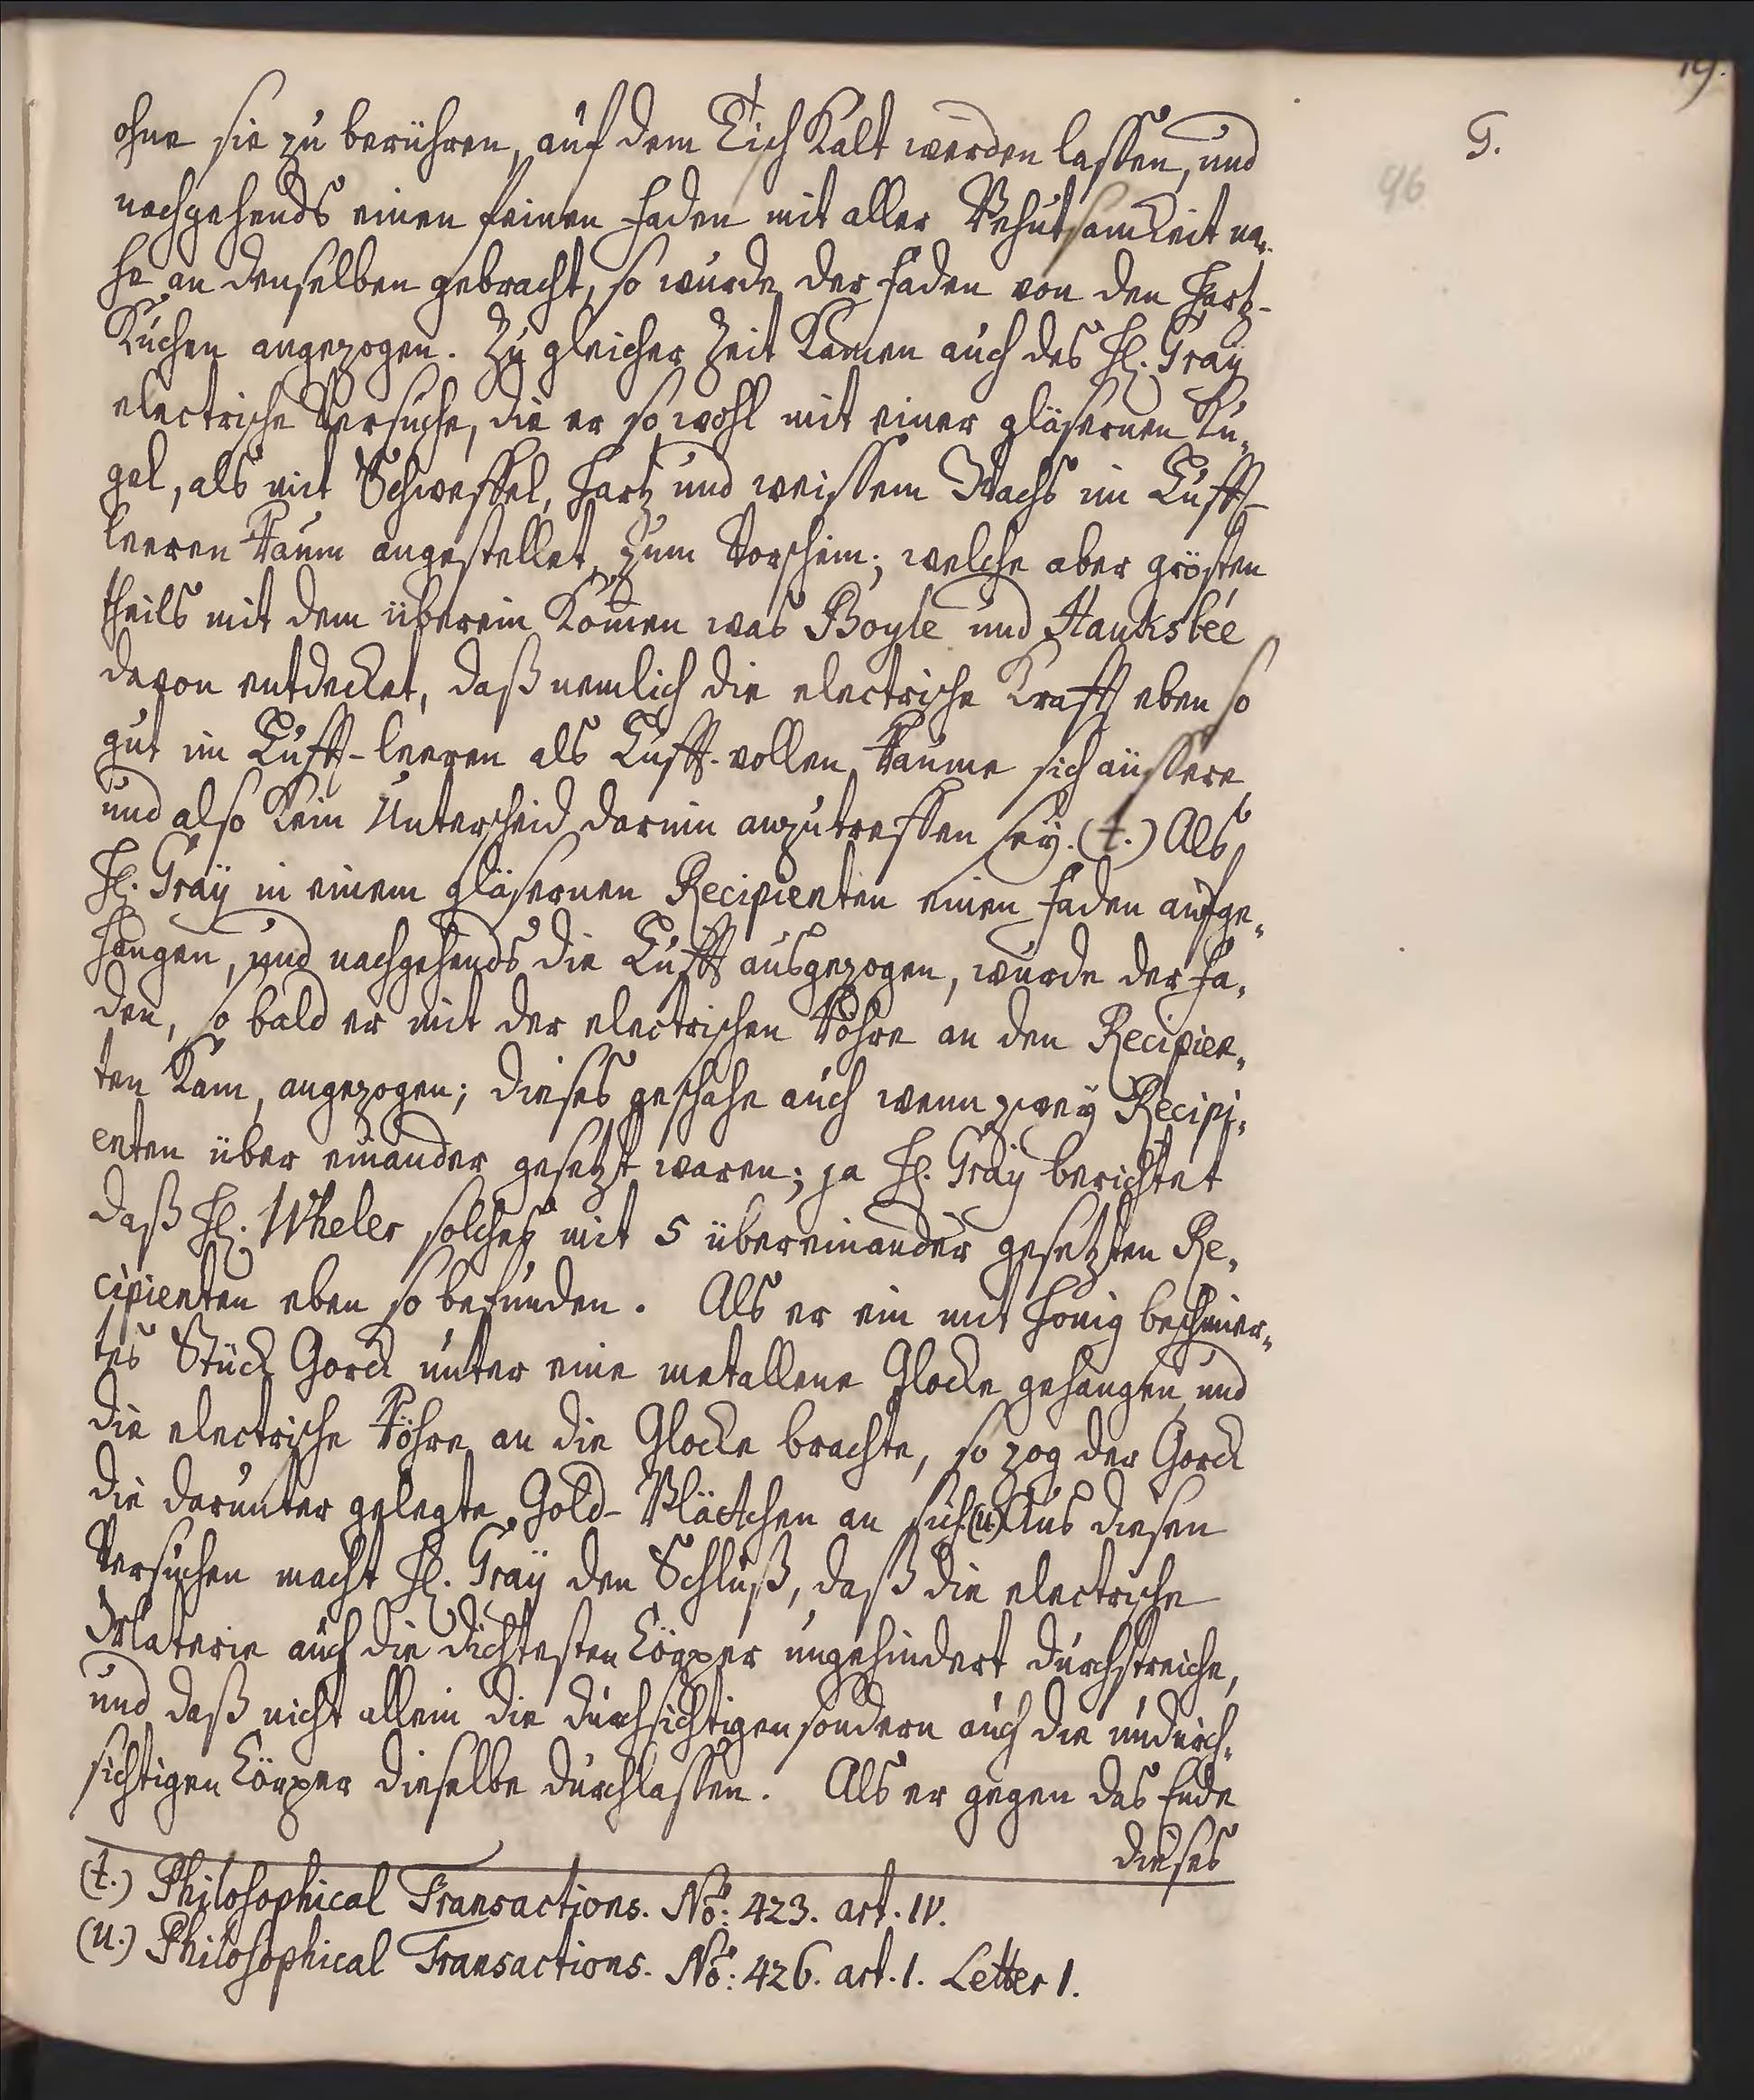 19.
G.
96
ohne sie zu berühren, auf dem Tisch kalt werden lassen, und
nachgehends einen feinen Faden mit aller Behutsamkeit na„
he an denselben gebracht, so wurde der Faden von den Hartz-
Kuchen angezogen. Zu gleicher Zeit kamen auch des H. Graÿ
electrische Versuche, die er so wohl mit einer gläsernen Ku„
gel, als mit Schweffel, Hartz und weissem Wachs im Lufft-
leeren Raum angestellet, zum Vorschein; welche aber grösten
theils mit dem überein kom̄en was Boyle und Hauksbée
davon entdecket, daß nemlich die electrische Krafft eben so
gut im Lufft-leeren als Lufft-vollen Raume sich äussere
und also kein Unterscheid darinn anzutreffen seÿ. (t.) Als
H. Graÿ in einem gläsernen Recipienten einen Faden aufge„
hangen, und nachgehends die Lufft ausgezogen, wurde der Fa„
den, so bald er mit der electrischen Röhre an den Recipien„
ten kam, angezogen; dieses geschahe auch wenn zweÿ Recipi„
enten über einander gesetzt waren; ja H. Graÿ berichtet
daß H. Wheler solches mit 5 übereinander gesetzten Re„
cipienten eben so befunden. Als er ein mit Honig beschmier„
tes Stück Gorck unter eine metallene Glocke gehangen und
die electrische Röhre an die Glocke brachte, so zog der Gorck
die darunter gelegte Gold-Blättchen an sich. (u.) Aus diesen
Versuchen macht H. Graÿ den Schluß, daß die electrische
Materie auch die dichtesten Cörper ungehindert durchstreiche,
und daß nicht allein die durchsichtigen sondern auch die undurch„
sichtigen Cörper dieselbe durchlassen. Als er gegen das Ende
dieses
(t.) Philosophical Transactions. No: 423. art. IV.
(u.) Philosophical Transactions. No: 426. art. 1. Letter 1.